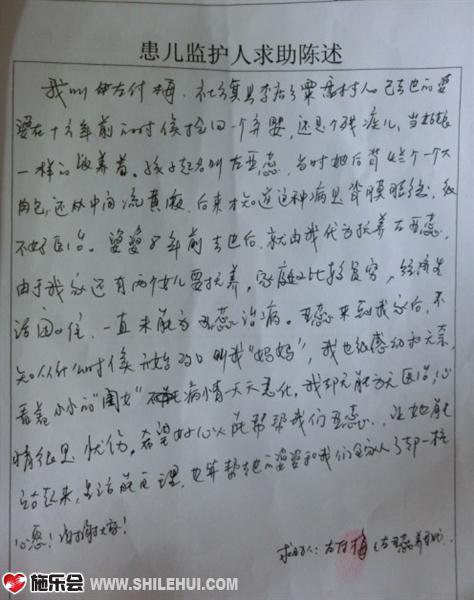 患儿监护人求助陈述
我叫左付梅,社旗县李店乡粟庄村人。已去世的婆
婆在十六年前的时候捡回一个弃婴,还是个残疾儿,当姑娘
一样的收养着。孩子起名叫左亚蕊,当时她后背上长个一个大
肉包,还从中间流黄液,后来才知道这种病是脊膜膨出,很
不好医治。婆婆8年前去世后,就由我代为抚养左亚蕊。
由于我家还有两个女儿要抚养,家庭比较贫穷,经济生
活困难,一直未能为亚蕊治病。亚蕊来到我家后,不
知从什么时候开始改口叫我“妈妈”,我也很感动和无奈。
看着小小的“闺女”病情天天恶化,我却无能为力医治,心
情很是忧伤。希望好心人能帮帮我们亚蕊,让她能
站起来,生活能自理,也算帮她婆婆和我们全家人了却一桩
心愿!谢谢大家!
求助人:左付梅(左亚蕊养母)
施乐会 WWW.SHILEHUI.COM